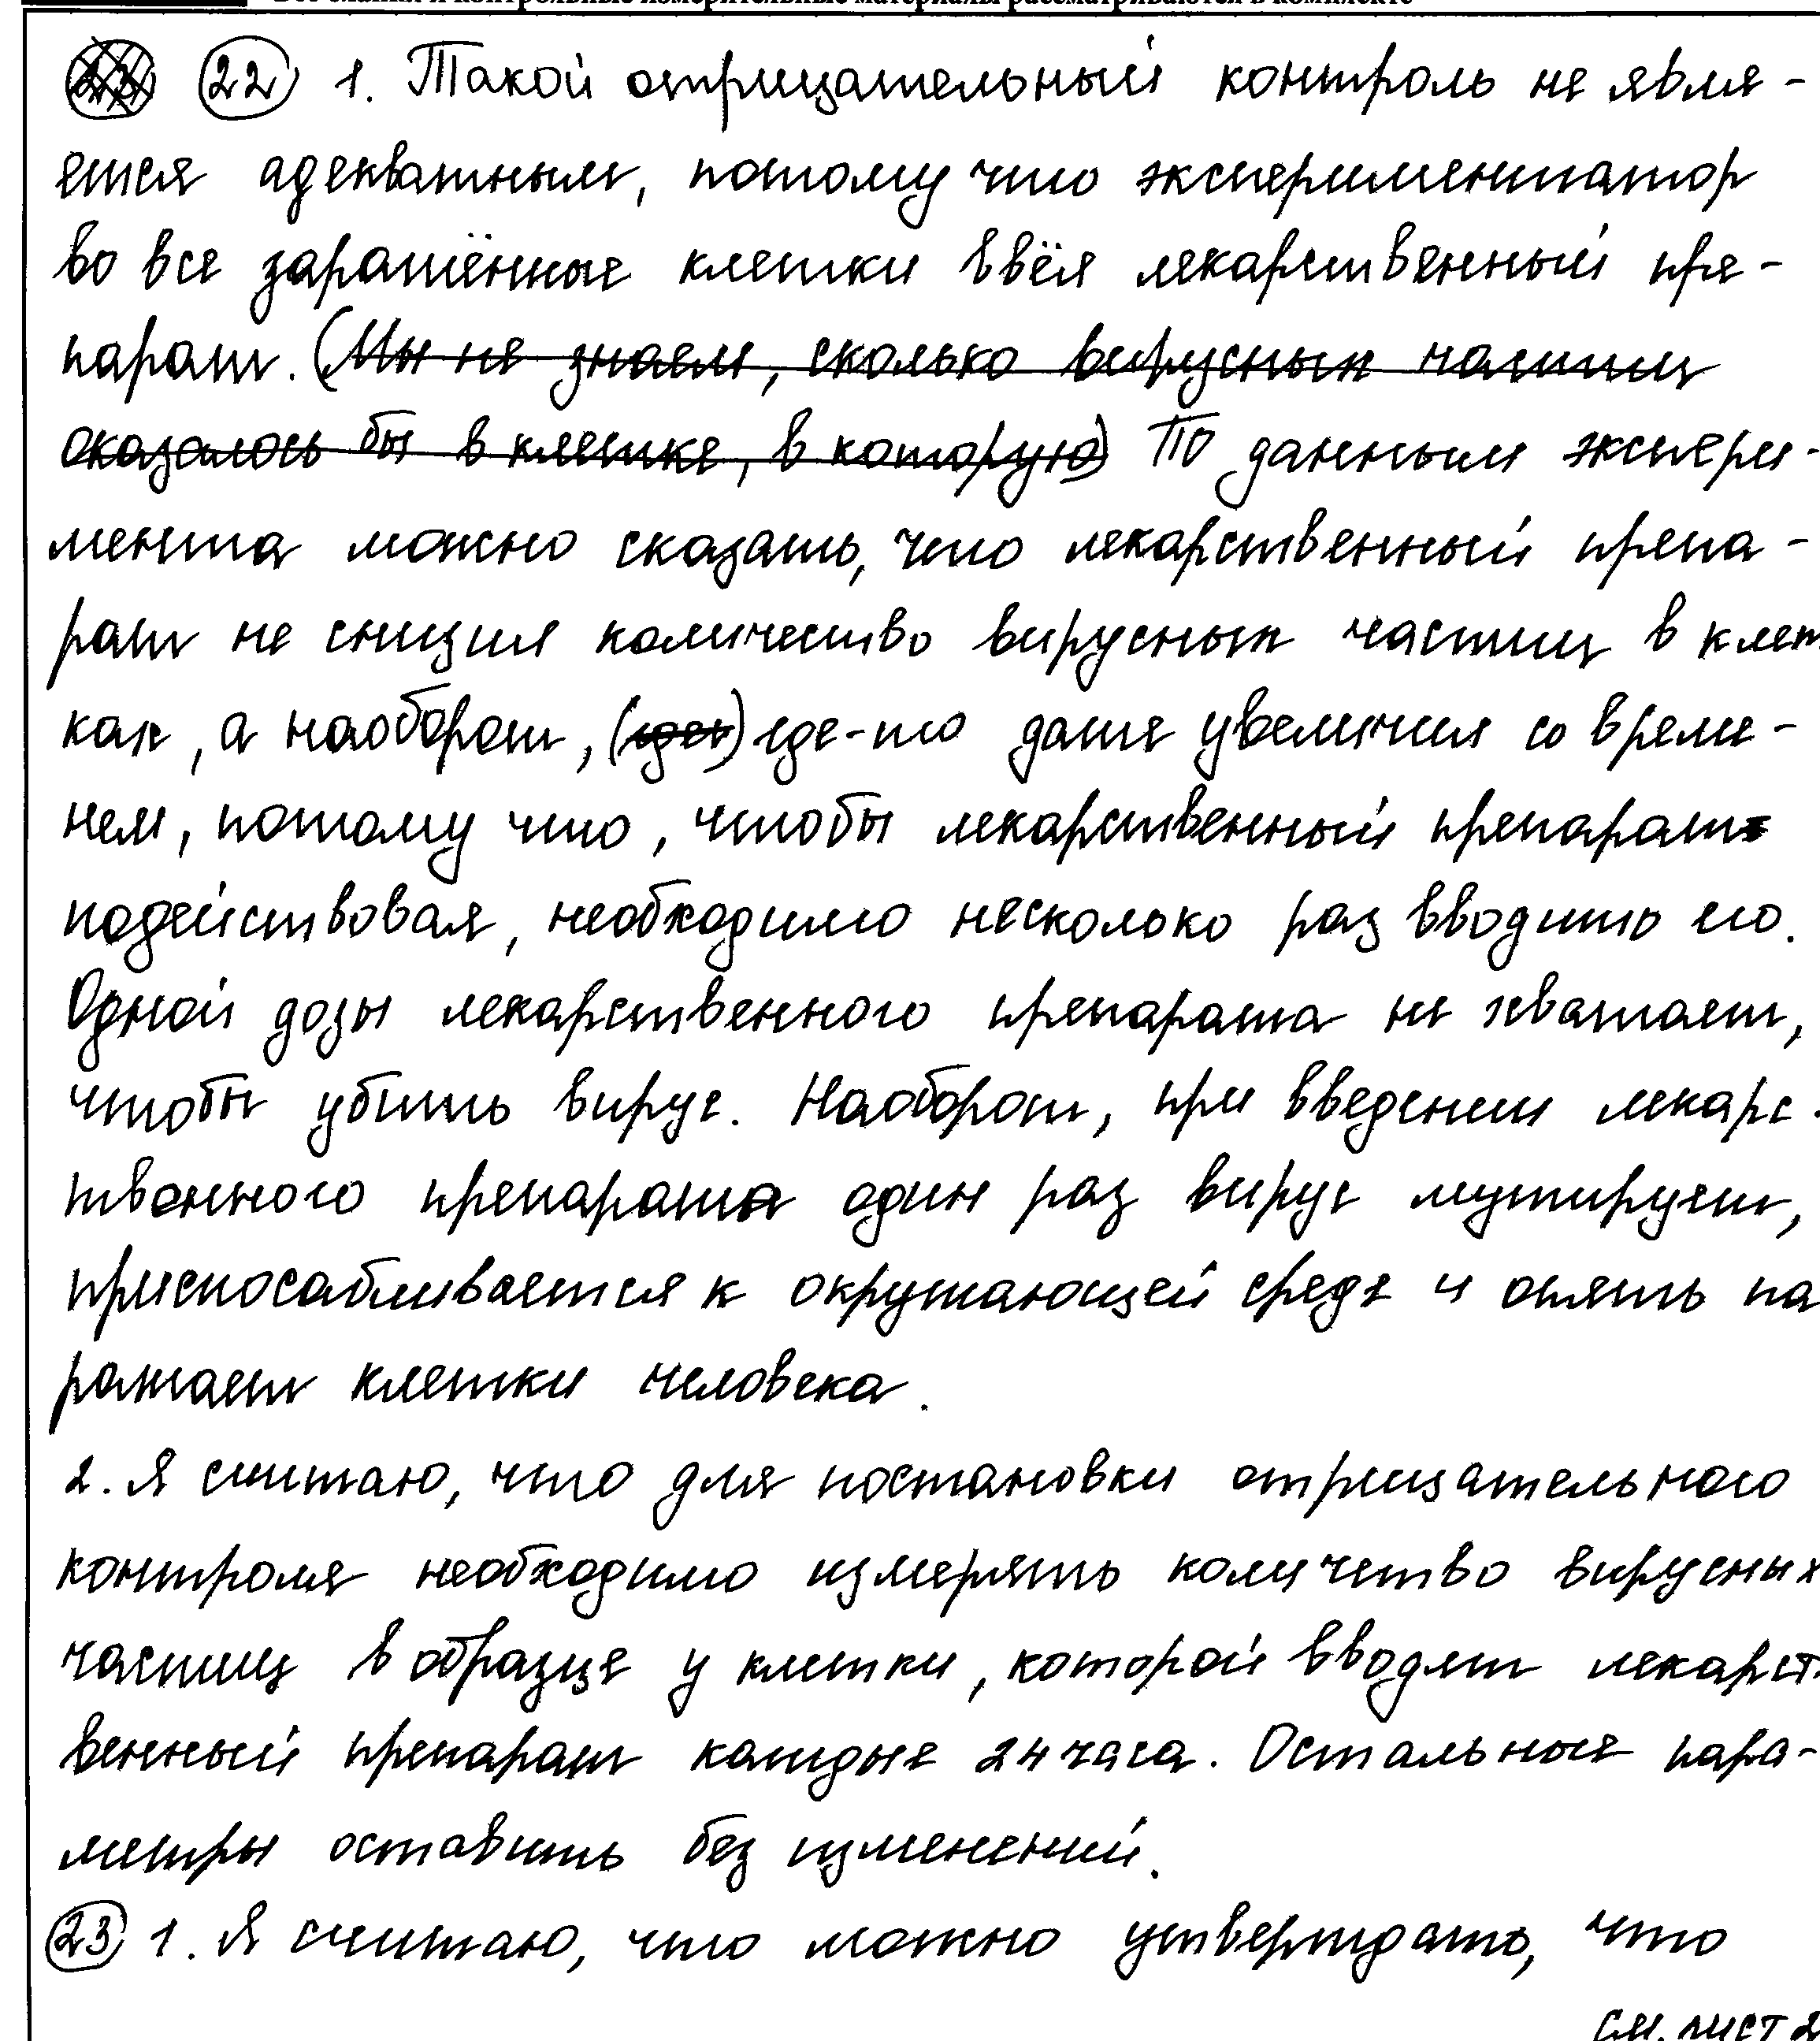 Все бланки и контрольные измерительные материалы рассматриваются в комплекте
22 1. Такой отрицательный контроль не явля-
ется адекватным, потому что экспериментатор
во все заражённые клетки ввёл лекарственный пре-
парат. (Мы не знаем, сколько вирусных частиц
оказалось бы в клетке, в которую) По данным экспери-
мента можно сказать, что лекарственный препа-
рат не снизил количество вирусных частиц в клет
ках, а наоборот, (где) где-то даже увеличил со време-
нем, потому что, чтобы лекарственный препарат
подействовал, необходимо несколько раз вводить его.
Одной дозы лекарственного препарата не хватает,
чтобы убить вирус. Наоборот, при введении лекарс-
твенного препарата один раз вирус мутирует,
приспосабливается к окружающей среде и опять по
ражает клетки человека.
2. Я считаю, что для постановки отрицательного
контроля необходимо измерять количество вирусных
частиц в образце у клетки, которой вводят лекарст-
венный препарат каждые 24 часа. Остальные пара-
метры оставить без изменений.
23 1. Я считаю, что можно утверждать, что
см. лист 2